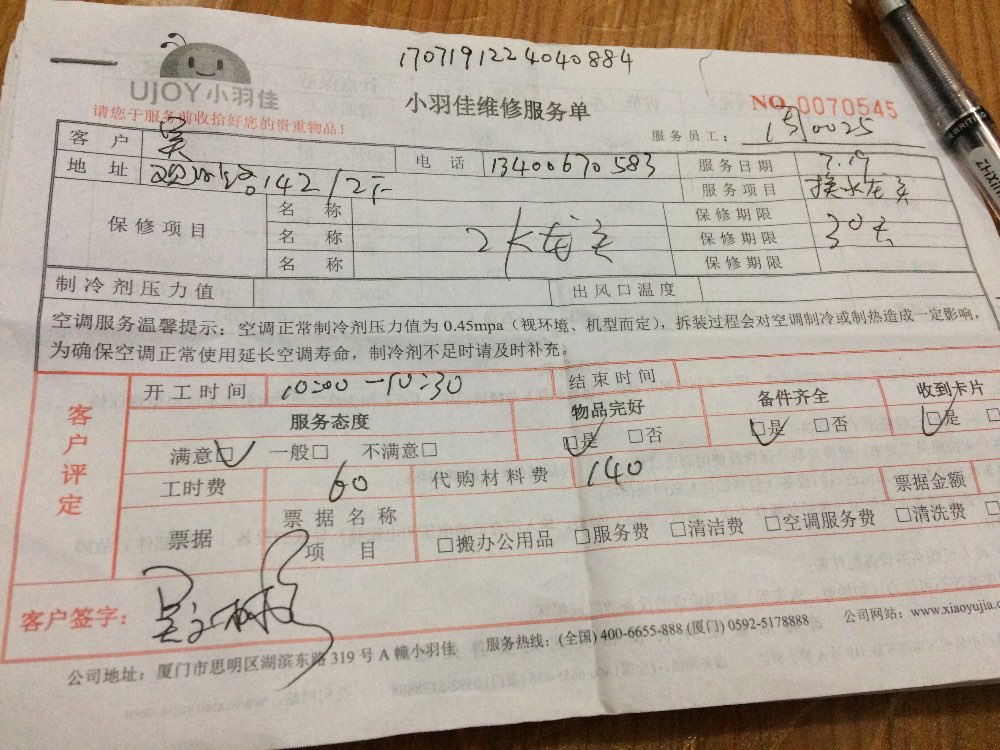 1707191224040884
UJOY小羽佳
小羽佳维修服务单
NO.0070545
请您于服务前收拾好您的贵重物品！
服务员工：
客户 吴 电话 13400670583 服务日期 7.19
地址 142/2 服务项目 换水龙头
保修项目 名称 保修期限
名称 水龙头 保修期限 30天
名称 保修期限
制冷剂压力值 出风口温度
空调服务温馨提示：空调正常制冷剂压力值为 0.45mpa（视环境、机型而定），拆装过程会对空调制冷或制热造成一定影响，
为确保空调正常使用延长空调寿命，制冷剂不足时请及时补充。
客户评定
开工时间 10:00-10:30 结束时间
服务态度 物品完好 备件齐全 收到卡片
满意□ 一般□ 不满意□ □是 □否 □是 □否 □是
工时费 60 代购材料费 140 票据金额
票据 票据名称
项目 □搬办公用品 □服务费 □清洁费 □空调服务费 □清洗费
客户签字：
公司地址：厦门市思明区湖滨东路 319 号 A 幢小羽佳 服务热线：(全国) 400-6655-888 (厦门) 0592-5178888 公司网站：www.xiaoyujia.c